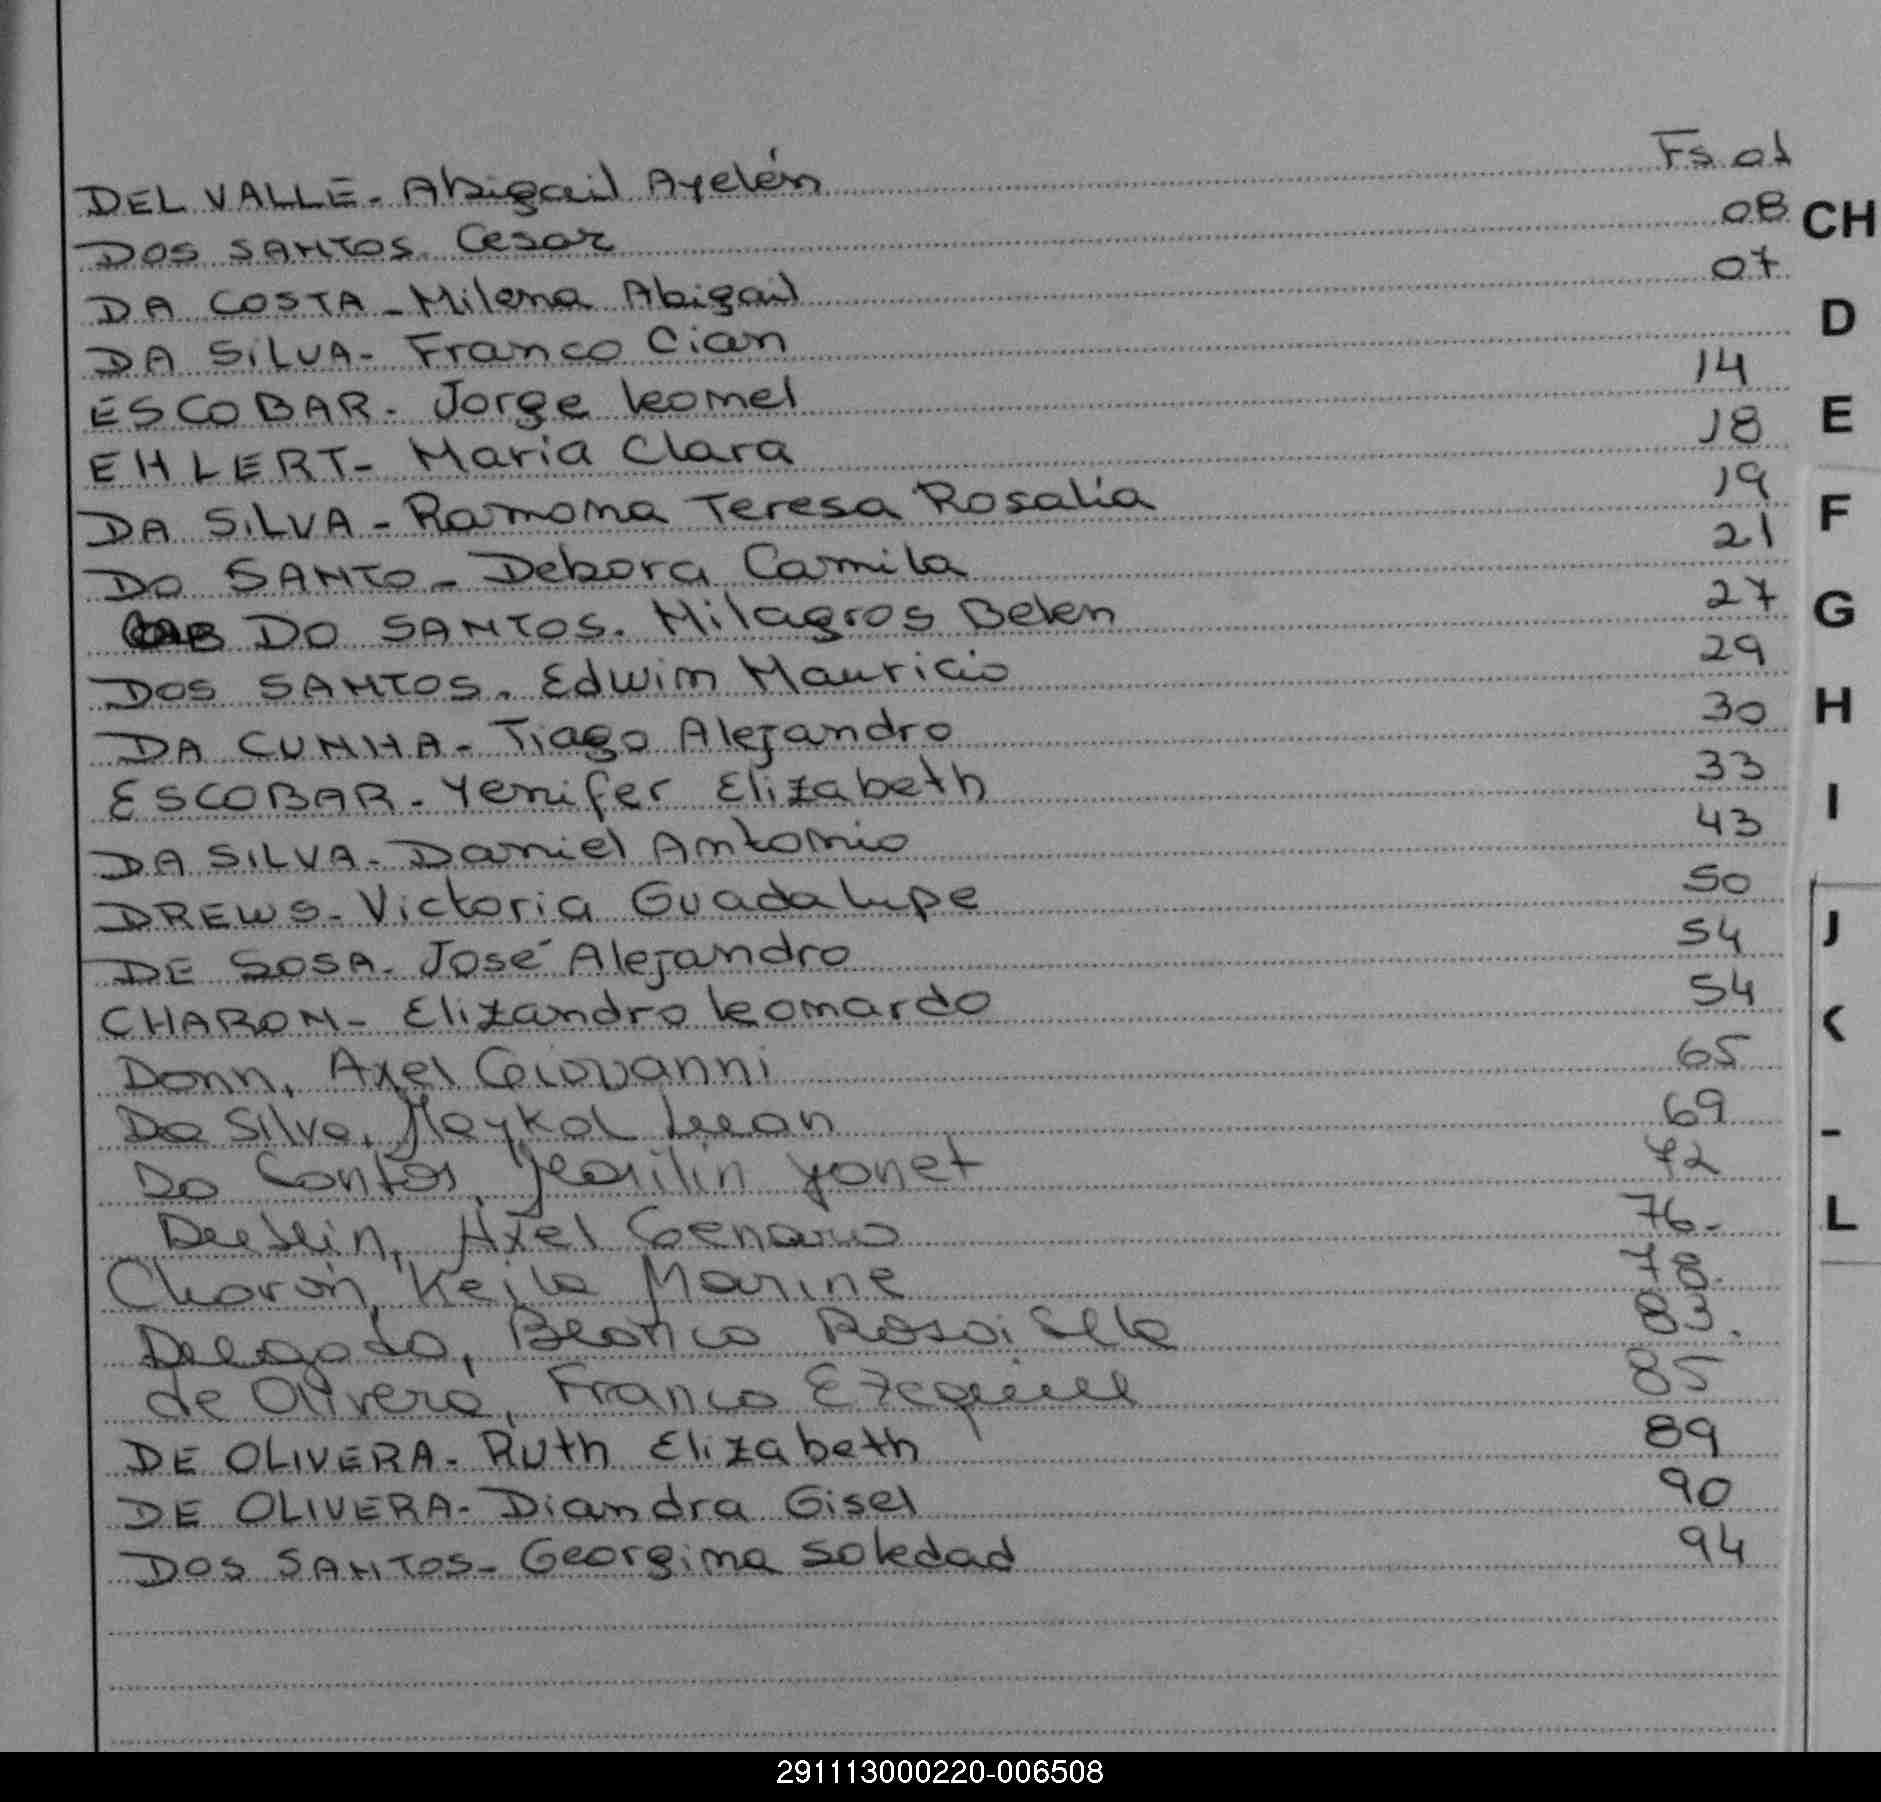 DEL VALLE - Abigail Ayelén Fs 01
DOS SANTOS. Cesar 08
DA COSTA - Milena Abigail 07
DA SILVA - Franco Cian
ESCOBAR - Jorge Leonel 14
EHLERT - Maria Clara 18
DA SILVA - Ramona Teresa Rosalia 19
DO SANTO - Debora Camila 21
DO SANTOS. Milagros Belen 27
DOS SANTOS. Edwin Mauricio 29
DA CUNHA - Tiago Alejandro 30
ESCOBAR - Yenifer Elizabeth 33
DA SILVA - Daniel Antonio 43
DREWS - Victoria Guadalupe 50
DE SOSA - José Alejandro 54
CHARON - Elizandro Leonardo 54
Donn, Axel Giovanni 65
Da Silva, Maykol Luan 69
Do Santos, Yanet 72
Axel Genaro 76.
Charon, Keila Marine 78.
Delgado, Bianca 83.
de Olivera, Franco Ezequiel 85
DE OLIVERA - Ruth Elizabeth 89
DE OLIVERA - Diandra Gisel 90
DOS SANTOS - Georgina Soledad 94
CH
D
E
F
G
H
I
J
K
-
L
291113000220-006508